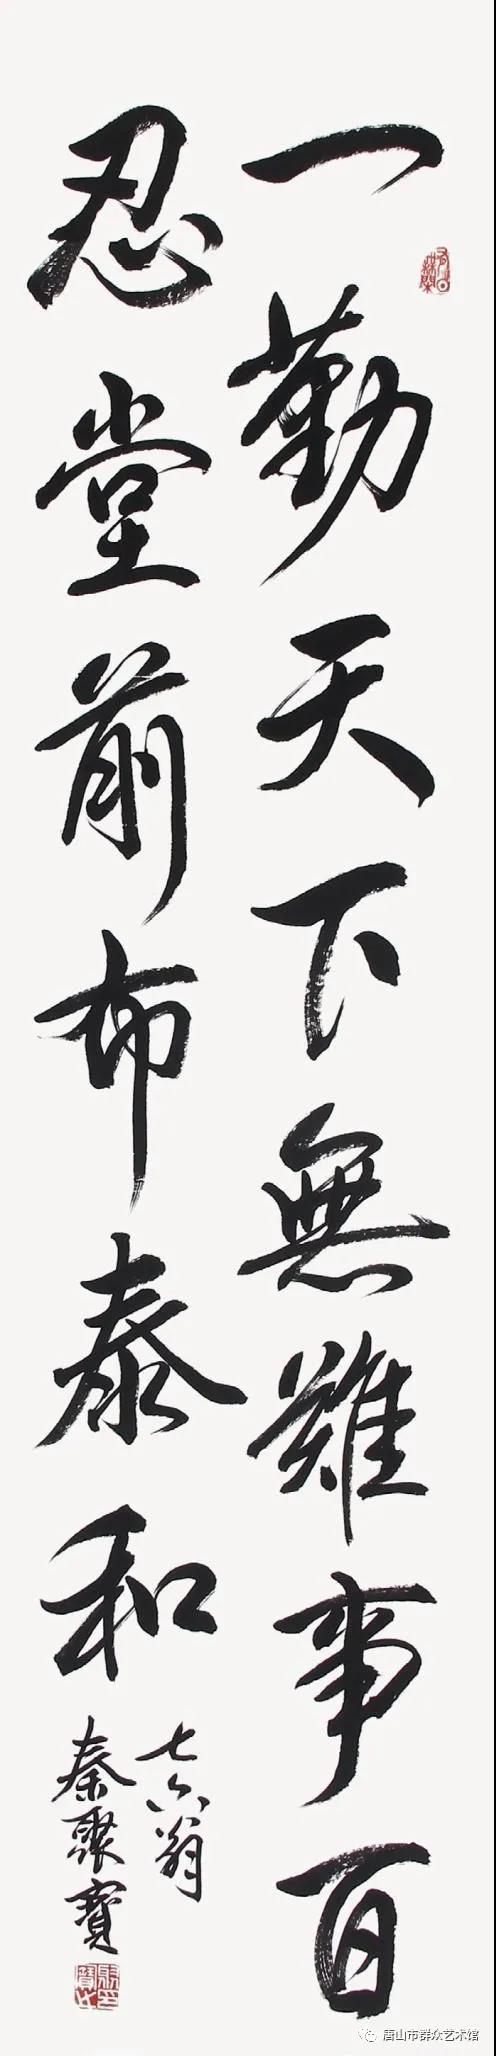 一勤天下無難事百
忍堂前布泰和
七六翁
秦聚寶
唐山市群众艺术馆